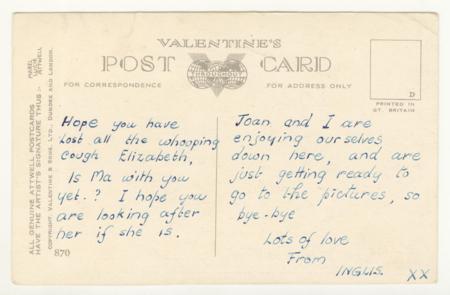 VALENTINE'S
POST CARD
THROUGHOUT
FOR CORRESPONDENCE
FOR ADDRESS ONLY
D
PRINTED IN
GT. BRITAIN
ALL GENUINE ATTWELL POSTCARDS
HAVE THE ARTIST'S SIGNATURE THUS :-
MABEL
LUCIE
ATTWELL
COPYRIGHT. VALENTINE & SONS, LTD., DUNDEE AND LONDON.
Hope you have
Lost all the whooping
Cough Elizabeth,
Is Ma with you
yet.? I hope you
are looking after
her if she is.
870
Joan and I are
enjoying ourselves
down here, and are
just getting ready to
go to the pictures, so
bye-bye
Lots of love
From
INGLIS. XX